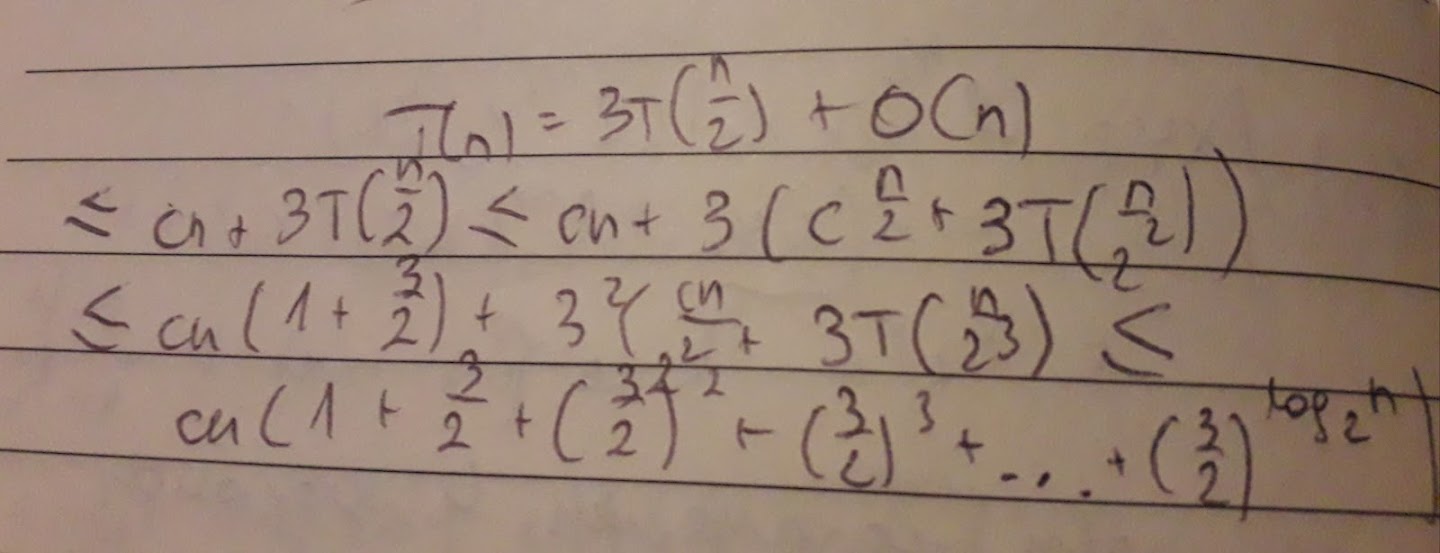 T(n) = 3T(n/2) + O(n)
≤ cn + 3T(n/2) ≤ cn + 3(c n/2 + 3T(n/2^2))
≤ cn(1 + 3/2) + 3^2(cn/2^2 + 3T(n/2^3) ≤
cn(1 + 3/2 + (3/2)^2 + (3/2)^3 + ... + (3/2)^log_2 n)